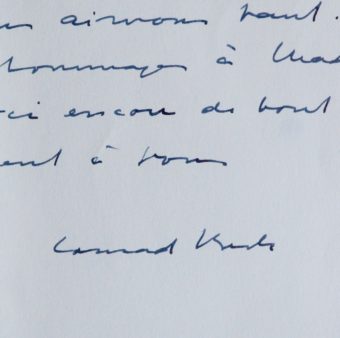 aimons tant.
hommages à Mad
ci encore de tout
ent à vous
Conrad